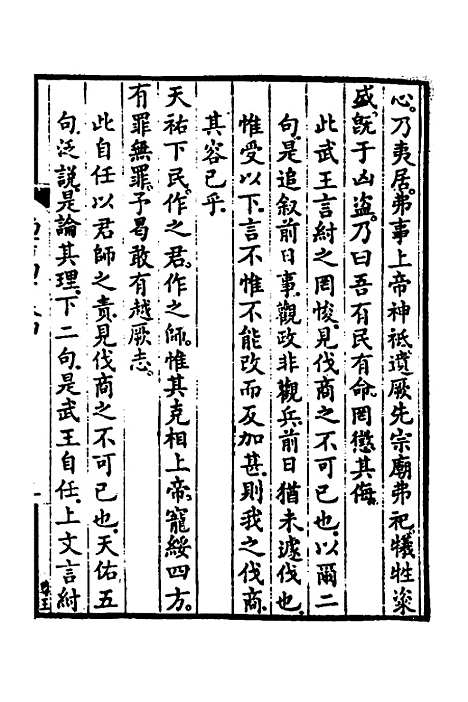 心。乃夷居。弗事上帝神祇。遺厥先宗廟弗祀。犧牲粢
盛。旣于凶盜。乃曰吾有民有命。罔懲其侮。
此武王言紂之罔悛。見伐商之不可已也。以爾二
句。是追叙前日事。觀政非觀兵。前日猶未遽伐也。
惟受以下。言不惟不能改而反加甚。則我之伐商。
其容已乎。
天祐下民。作之君。作之師。惟其克相上帝。寵綏四方。
有罪無罪。予曷敢有越厥志。
此自任以君師之責。見伐商之不可已也。天佑五
句。泛說。是論其理。下二句。是武王自任。上文言紂